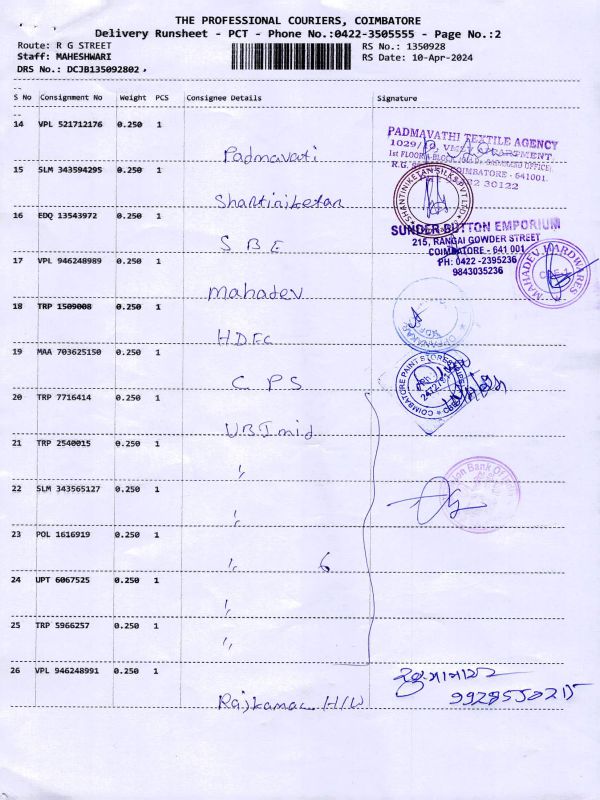 THE PROFESSIONAL COURIERS, COIMBATORE
Delivery Runsheet - PCT - Phone No.:0422-3505555 - Page No.:2
Route: R G STREET
RS No.: 1350928
Staff: MAHESHWARI
RS Date: 10-Apr-2024
DRS No.: DCJB135092802
S No Consignment No Weight PCS Consignee Details Signature
14 VPL 521712176 0.250 1
Padmavati
PADMAVATHI TEXTILE AGENCY
COIMBATORE - 641001.
15 SLM 343594295 0.250 1
Shantiniketan
SHANTINIKETAN SILKS PVT LTD
16 EDQ 13543972 0.250 1
S B E
SUNDER BUTTON EMPORIUM
215, RANGAI GOWDER STREET
COIMBATORE - 641 001
PH: 0422 -2395236
9843035236
17 VPL 946248989 0.250 1
mahadev
MAHADEV HARDWARES
CBE-1
18 TRP 1509008 0.250 1
HDFC
19 MAA 703625150 0.250 1
C P S
COIMBATORE PAINT STORES
20 TRP 7716414 0.250 1
UBI mid
21 TRP 2540015 0.250 1
〃
22 SLM 343565127 0.250 1
〃
Union Bank Of
23 POL 1616919 0.250 1
〃 6
24 UPT 6067525 0.250 1
〃
25 TRP 5966257 0.250 1
〃
26 VPL 946248991 0.250 1
Rajkamal H/W